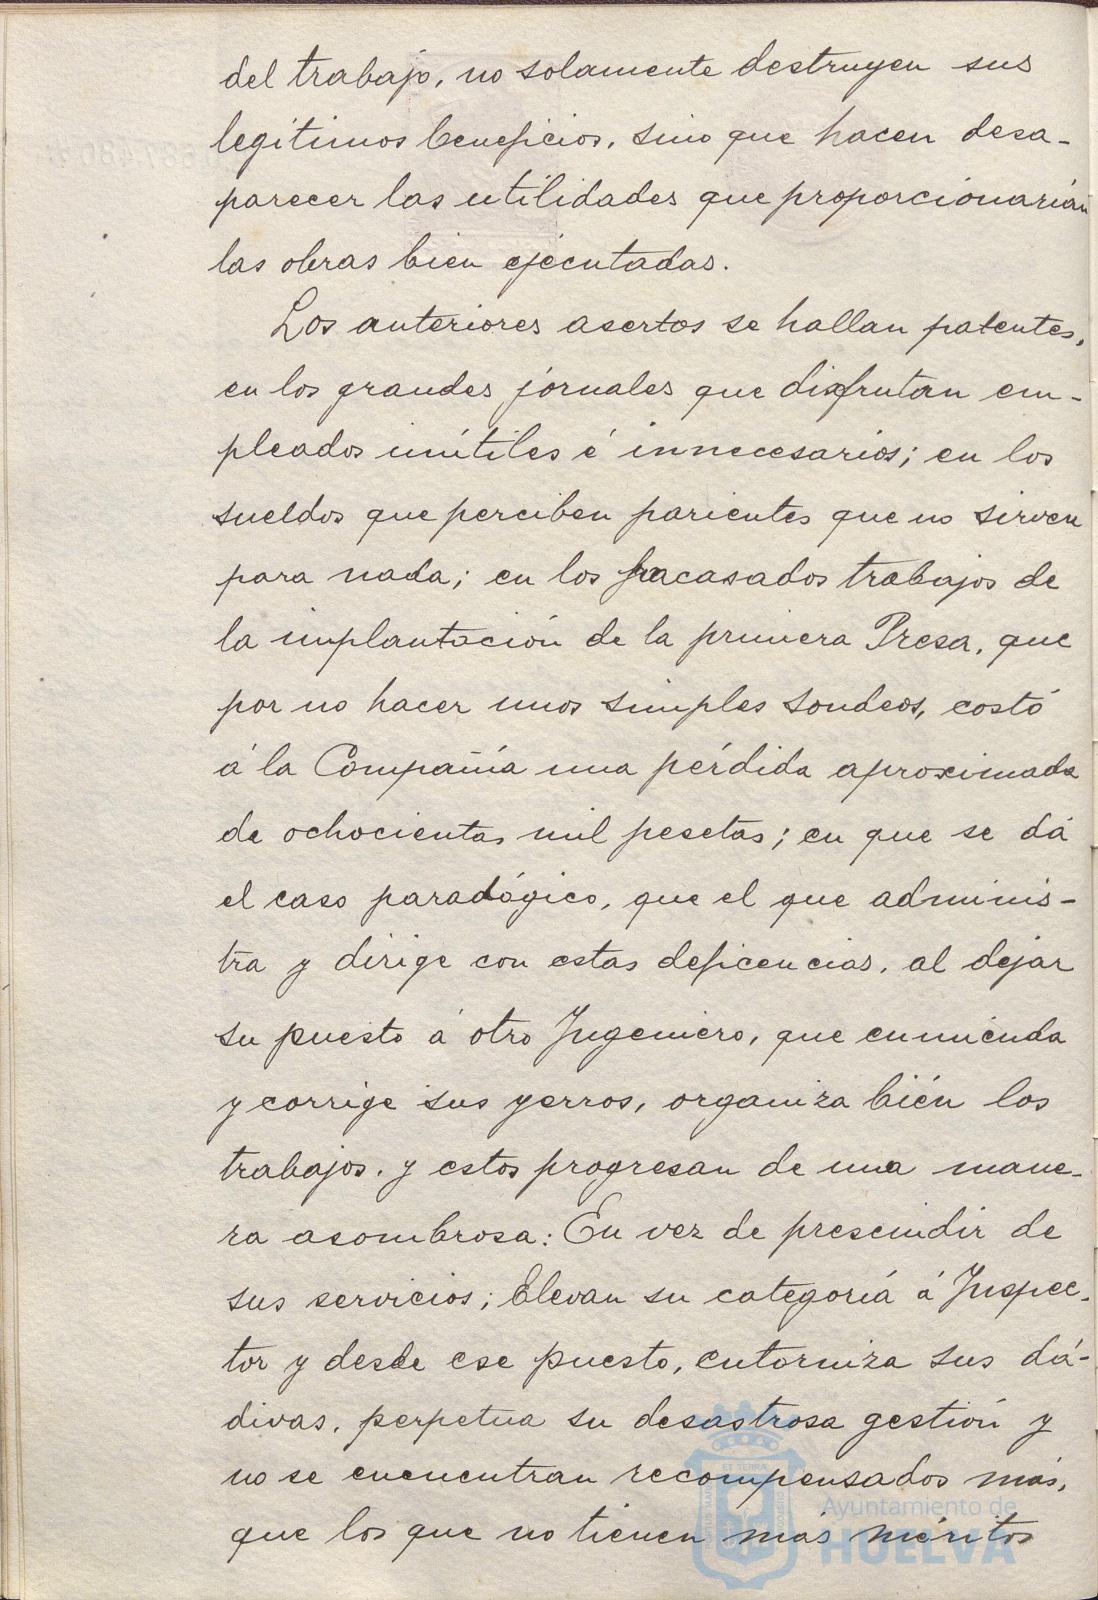 del trabajo, no solamente destruyen sus
legítimos beneficios, sino que hacen desa-
parecer las utilidades que proporcionarían
las obras bien ejecutadas.
Los anteriores asertos se hallan patentes,
en los grandes jornales que disfrutan em-
pleados inútiles é innecesarios; en los
sueldos que perciben parientes que no sirven
para nada; en los fracasados trabajos de
la implantación de la primera Presa, que
por no hacer unos simples sondeos, costó
á la Compañía una pérdida aproximada
de ochocientas mil pesetas; en que se dá
el caso paradógico, que el que adminis-
tra y dirige con estas deficencias, al dejar
su puesto á otro Ingeniero, que enmienda
y corrige sus yerros, organiza bién los
trabajos, y estos progresan de una mane-
ra asombrosa: En vez de prescindir de
sus servicios; Elevan su categoría á Inspec-
tor y desde ese puesto, entorniza sus dá-
divas, perpetua su desastrosa gestión y
no se encuentran recompensados más,
que los que no tienen más méritos
ET TERRAE
Ayuntamiento de
HUELVA